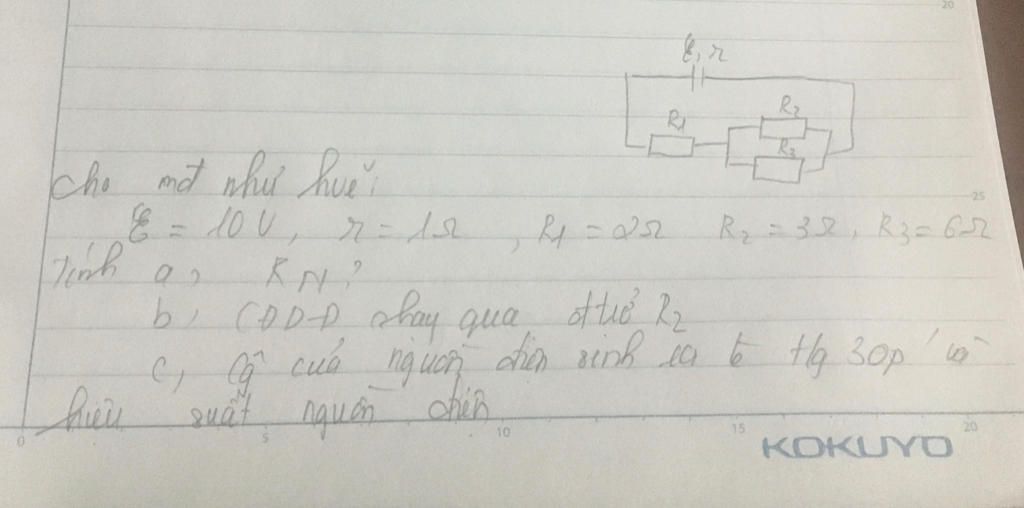 20
ℰ, r
R2
R1
R3
Cho mđ như hvẽ:
25
ℰ = 10V, r = 1Ω, R1 = 2Ω R2 = 3Ω, R3 = 6Ω
Tính a, RN?
b, CĐDĐ chạy qua đtrở R2
c, Cg của nguồn điện sinh ra tg 30p' và
hiệu suất nguồn điện
0 5 10 15 20
KOKUYO